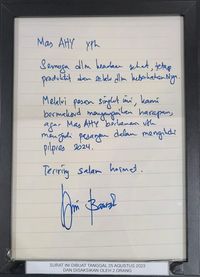 Mas AHY yth
Semoga dlm keadaan sehat, tetap
produktif dan selalu dlm kebahagiaanNya.
Melalui pesan singkat ini, kami
bermaksud menyampaikan harapan,
agar Mas AHY berkenan utk
menjadi pasangan dalam mengikuti
pilpres 2024.
Teriring salam hormat.
SURAT INI DIBUAT TANGGAL 25 AGUSTUS 2023
DAN DISAKSIKAN OLEH 2 ORANG